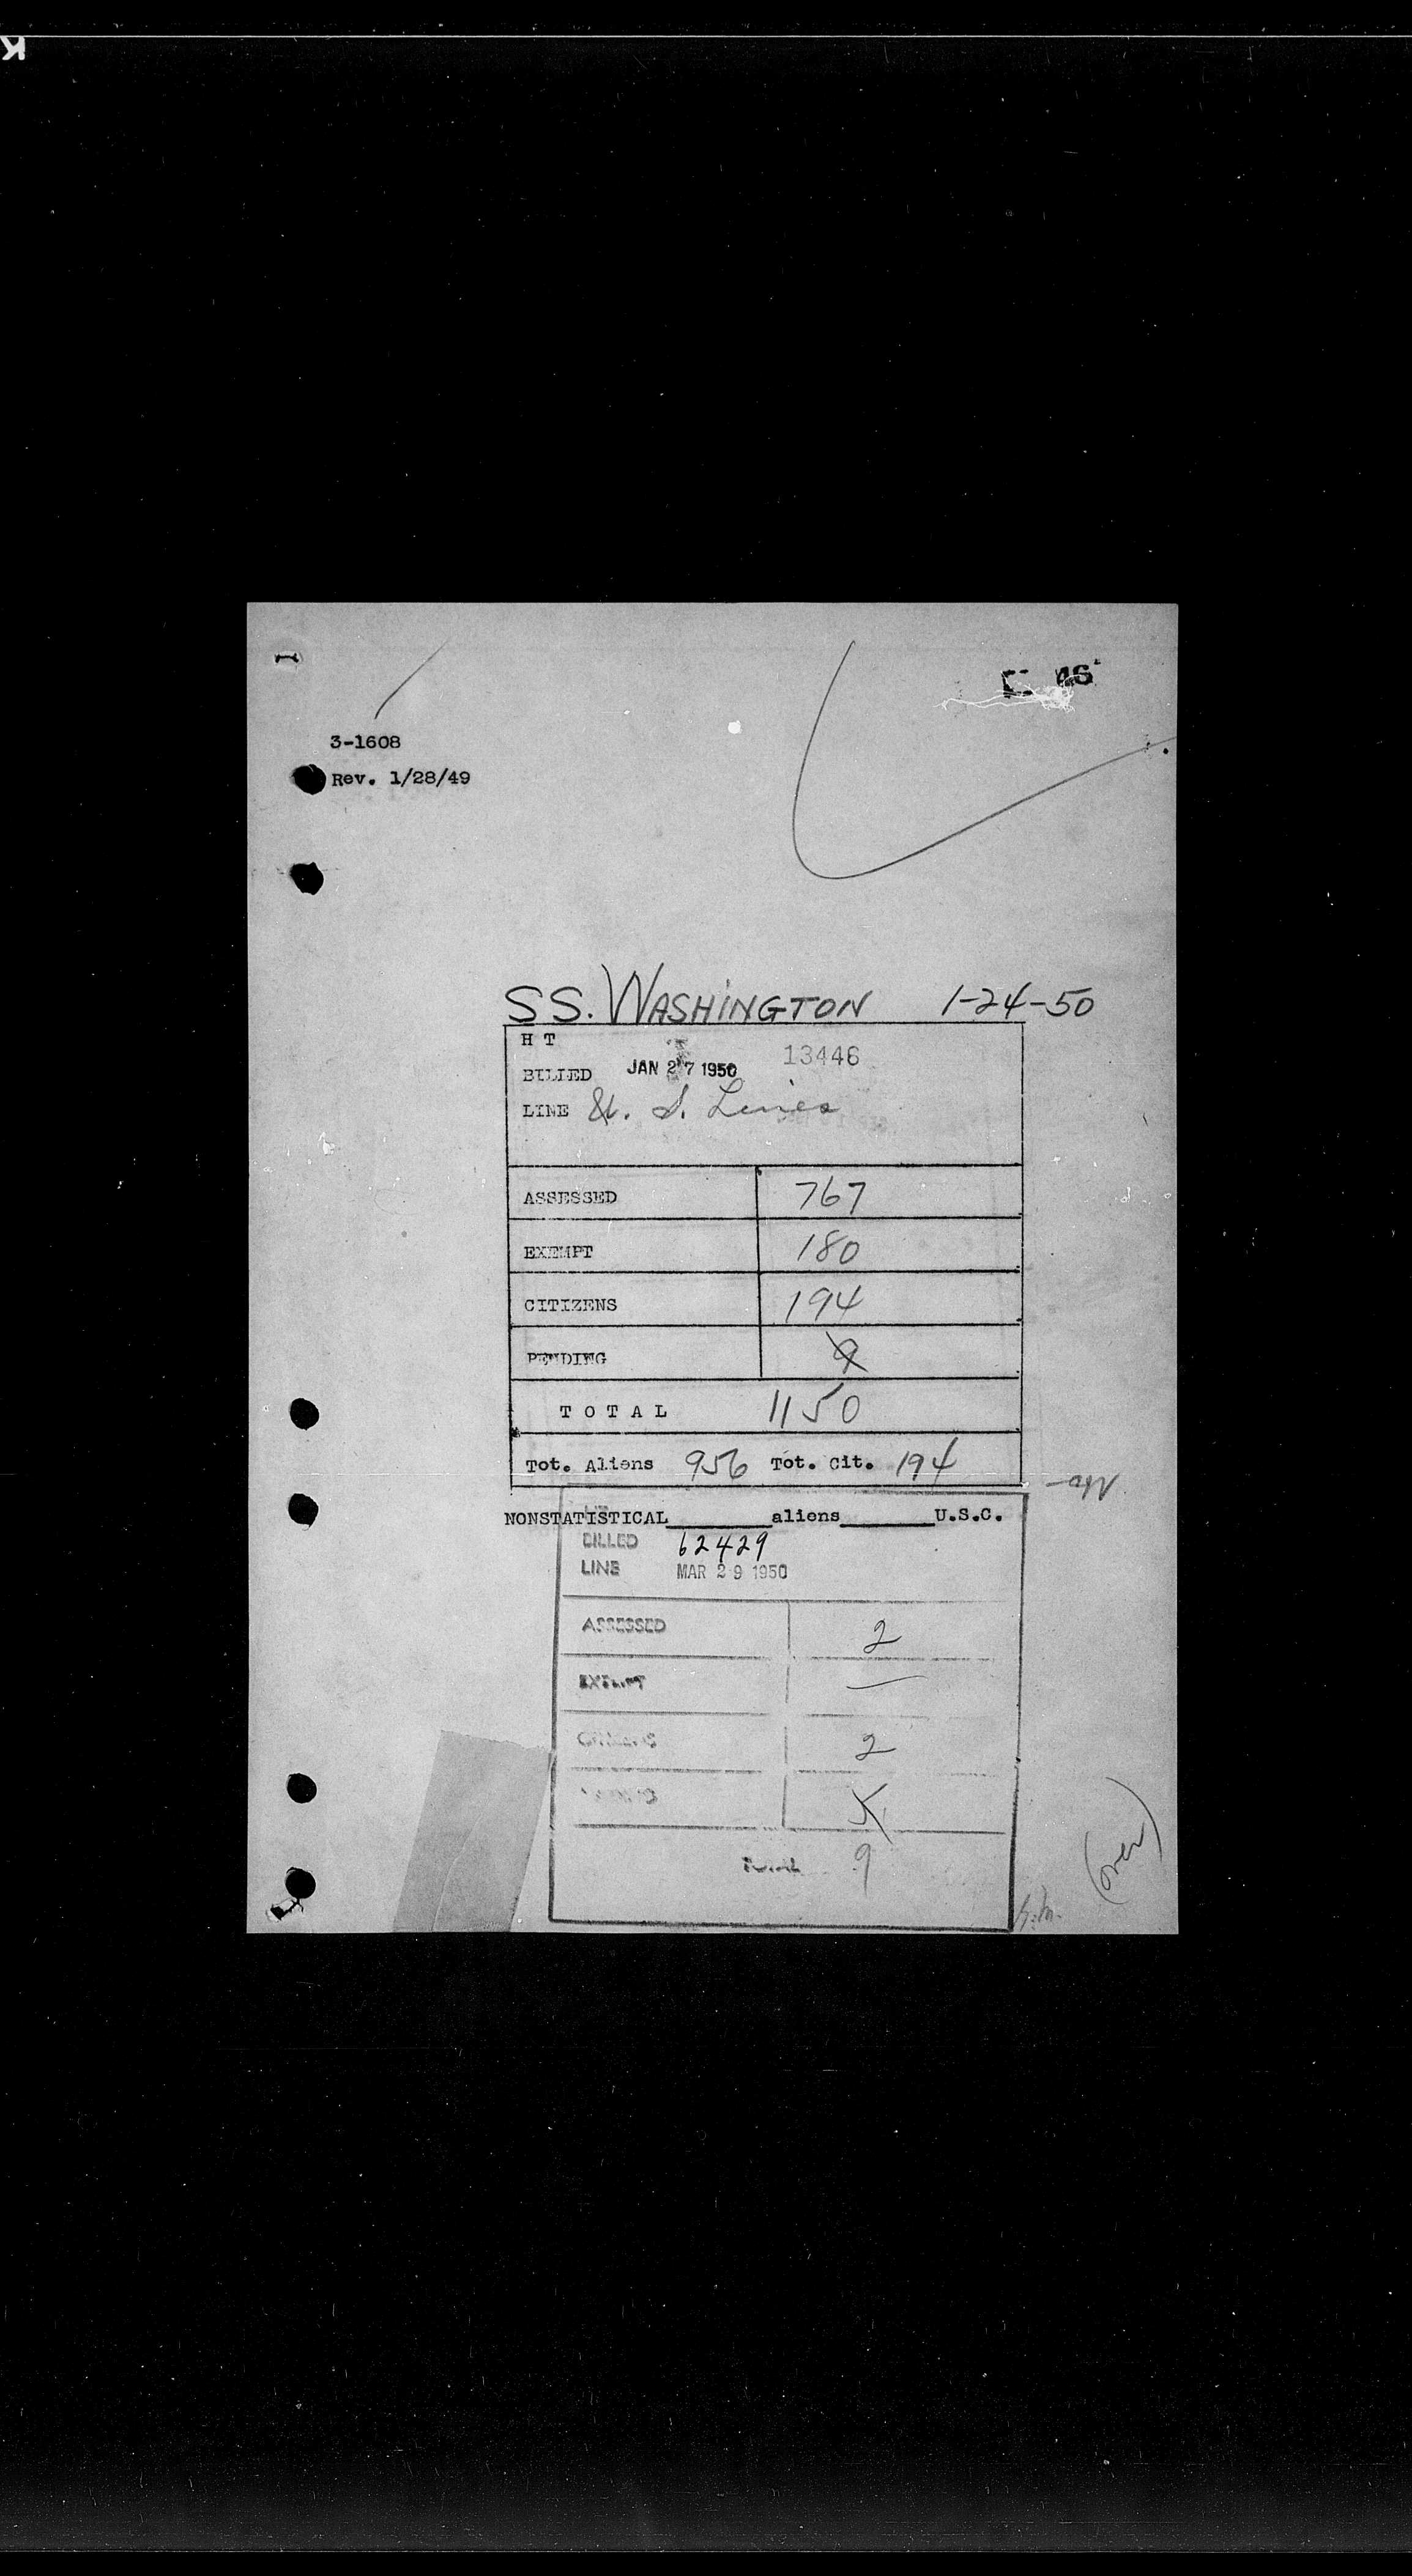 3-1608
Rev. 1/28/49
SS. WASHINGTON 1-24-50
H T
BILLED JAN 27 1950 13446
LINE U. S. Lines
ASSESSED 767
EXEMPT 180
CITIZENS 194
PENDING 9
T O T A L 1150
Tot. Aliens 956 Tot. Cit. 194
NONSTATISTICAL________aliens_______U.S.C.
BILLED 62429
LINE MAR 29 1950
ASSESSED 2
EXEMPT —
CITIZENS 2
5
TOTAL 9
(over)